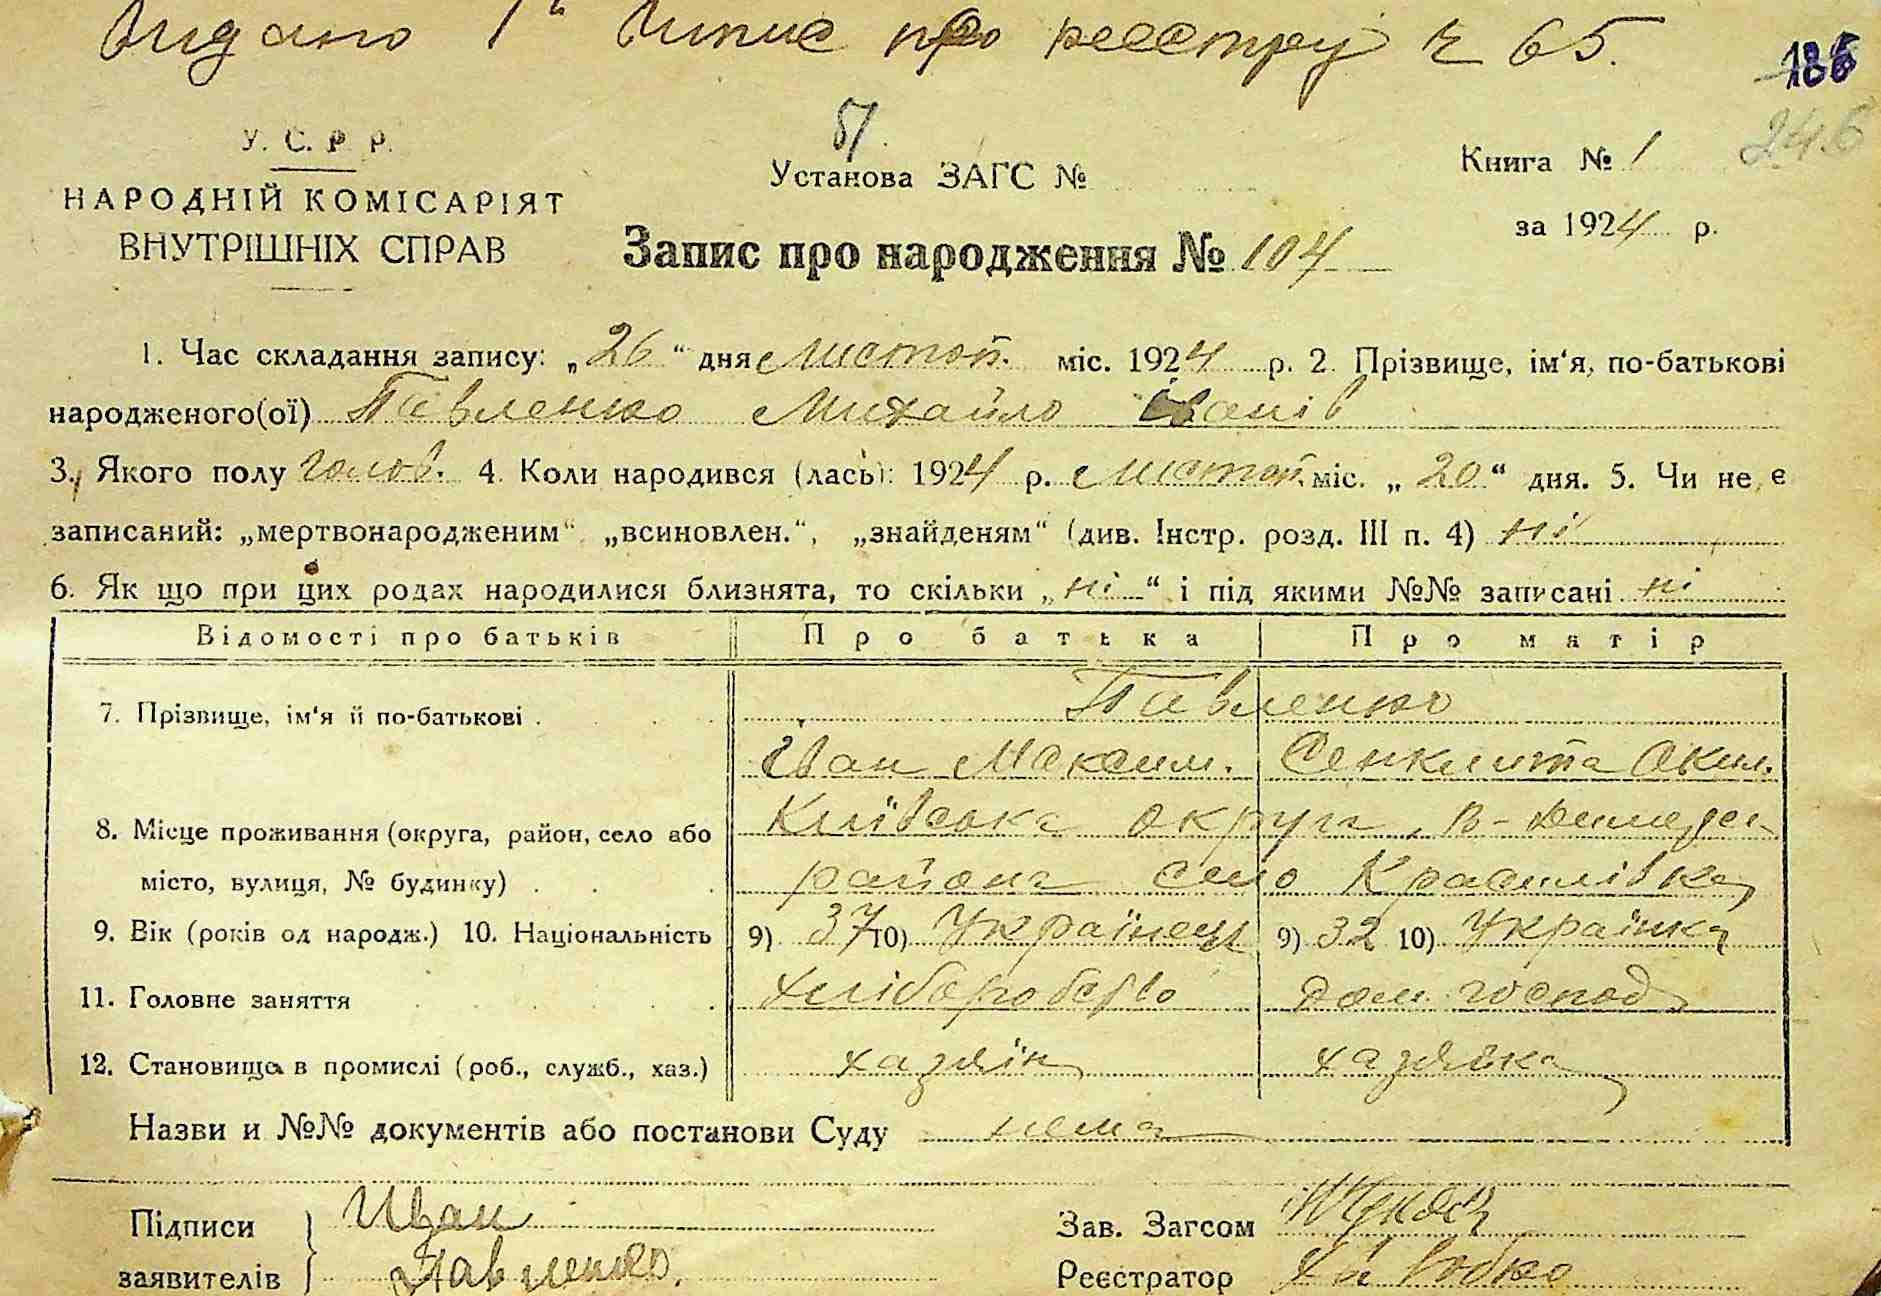 Видано 1й Випис про реєстру № 65.
186
246
У. С. Р. Р.
НАРОДНІЙ КОМІСАРІЯТ
ВНУТРІШНІХ СПРАВ
Установа ЗАГС №
Книга № 1
за 1924 р.
Запис про народження № 104
1. Час складання запису: „26“ дня листоп. міс. 1924 р. 2. Прізвище, ім‘я, по-батькові
народженого(ої) Павленко Михайло Іванів
3. Якого полу чолов. 4. Коли народився (лась): 1924 р. листоп. міс. „20“ дня. 5. Чи не є
записаний: „мертвонародженим“ „всиновлен.“, „знайденям“ (див. Інстр. розд. III п. 4) ні
6. Як що при цих родах народилися близнята, то скільки „ні“ і під якими №№ записані ні
Відомості про батьків Про батька Про матір
7. Прізвище, ім‘я й по-батькові . Павленко
Іван Максим. Секлита Яким.
8. Місце проживання (округа, район, село або Київська округа, В-Димерсь
місто, вулиця, № будинку) . района село Красилівка
9. Вік (років од народж.) 10. Національність 9) 37 10) Українець 9) 32 10) Українка
11. Головне заняття хліборобство дом. господ
12. Становища в промислі (роб., служб., хаз.) хазяїн хазяйка
Назви и №№ документів або постанови Суду нема
Підписи Иван Зав. Загсом
заявителів Павленко. Реєстратор